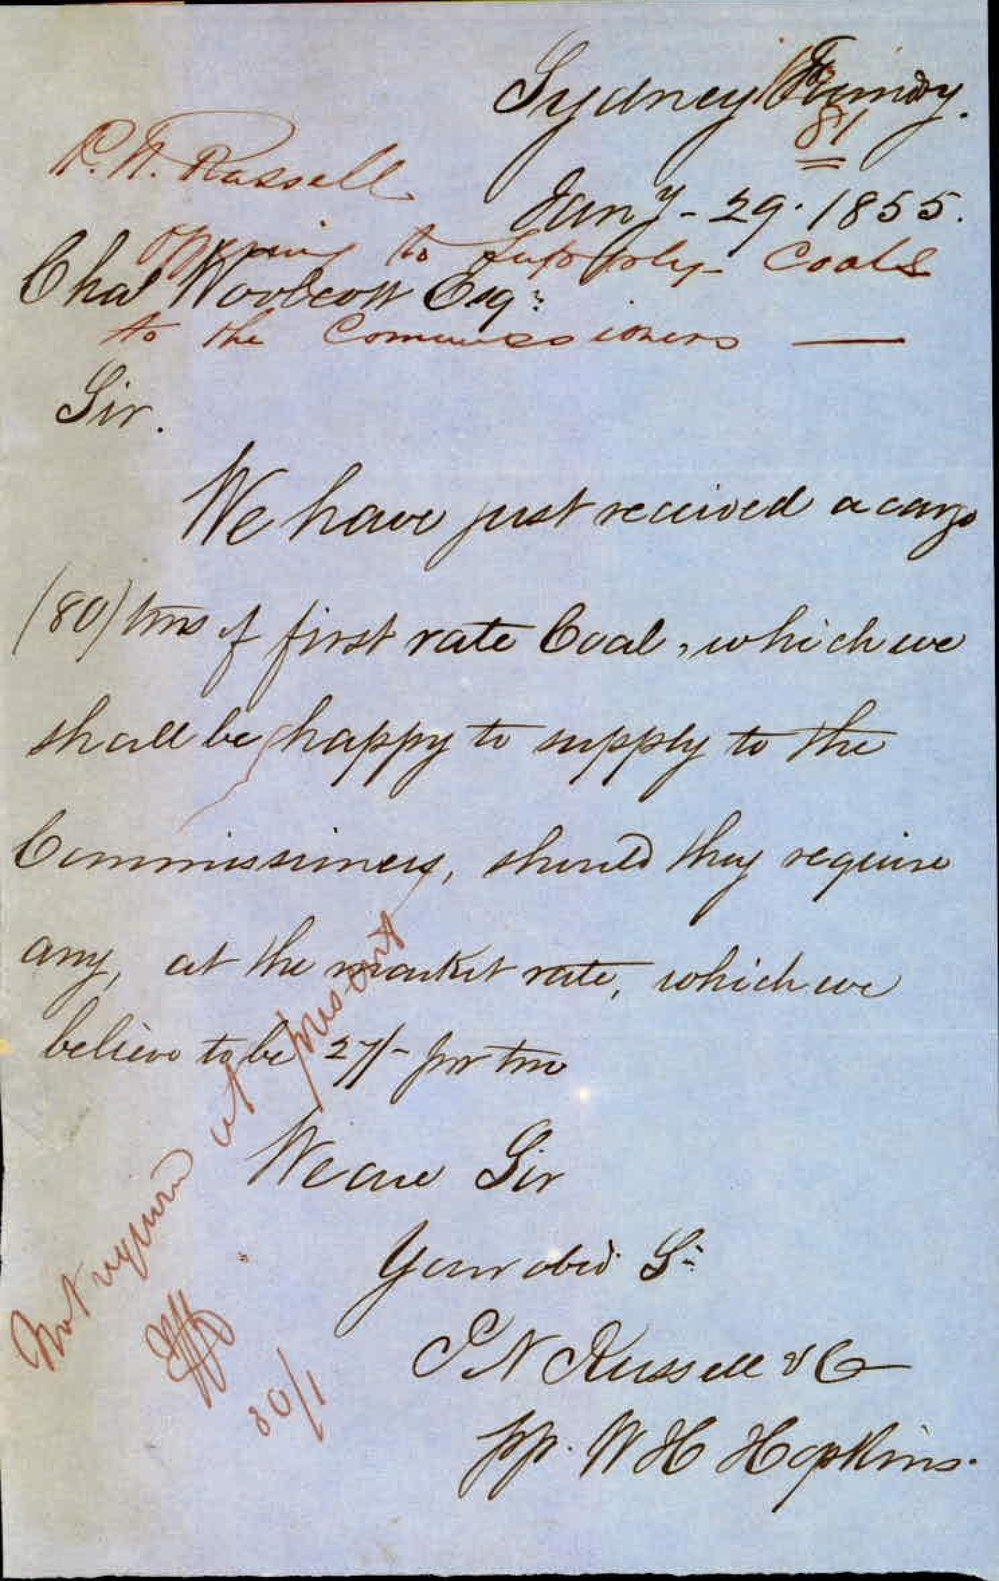 Sydney Foundry.
81
P. N. Russell
Jany - 29. 1855.
offering to supply Coals
Chas Woolcott Esqr.
to the Commissioners —
Sir.
We have just received a cargo
(80) tons of first rate Coal, which we
shall be happy to supply to the
Commissioners, should they require
any, at the market rate, which we
believe to be 27/- per ton
We are Sir
Your obed. St.
P N Russell & Co
pp. W H Hopkins.
Not required at present
30/1